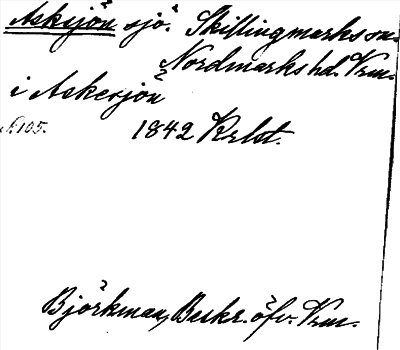 Askesjön sjö. Skillingmarks sn.
Nordmarks hd. Vrm.
i Askersjön
A 105. 1842 Krlst.
Björkman, Beskr. öfv. Vrm.